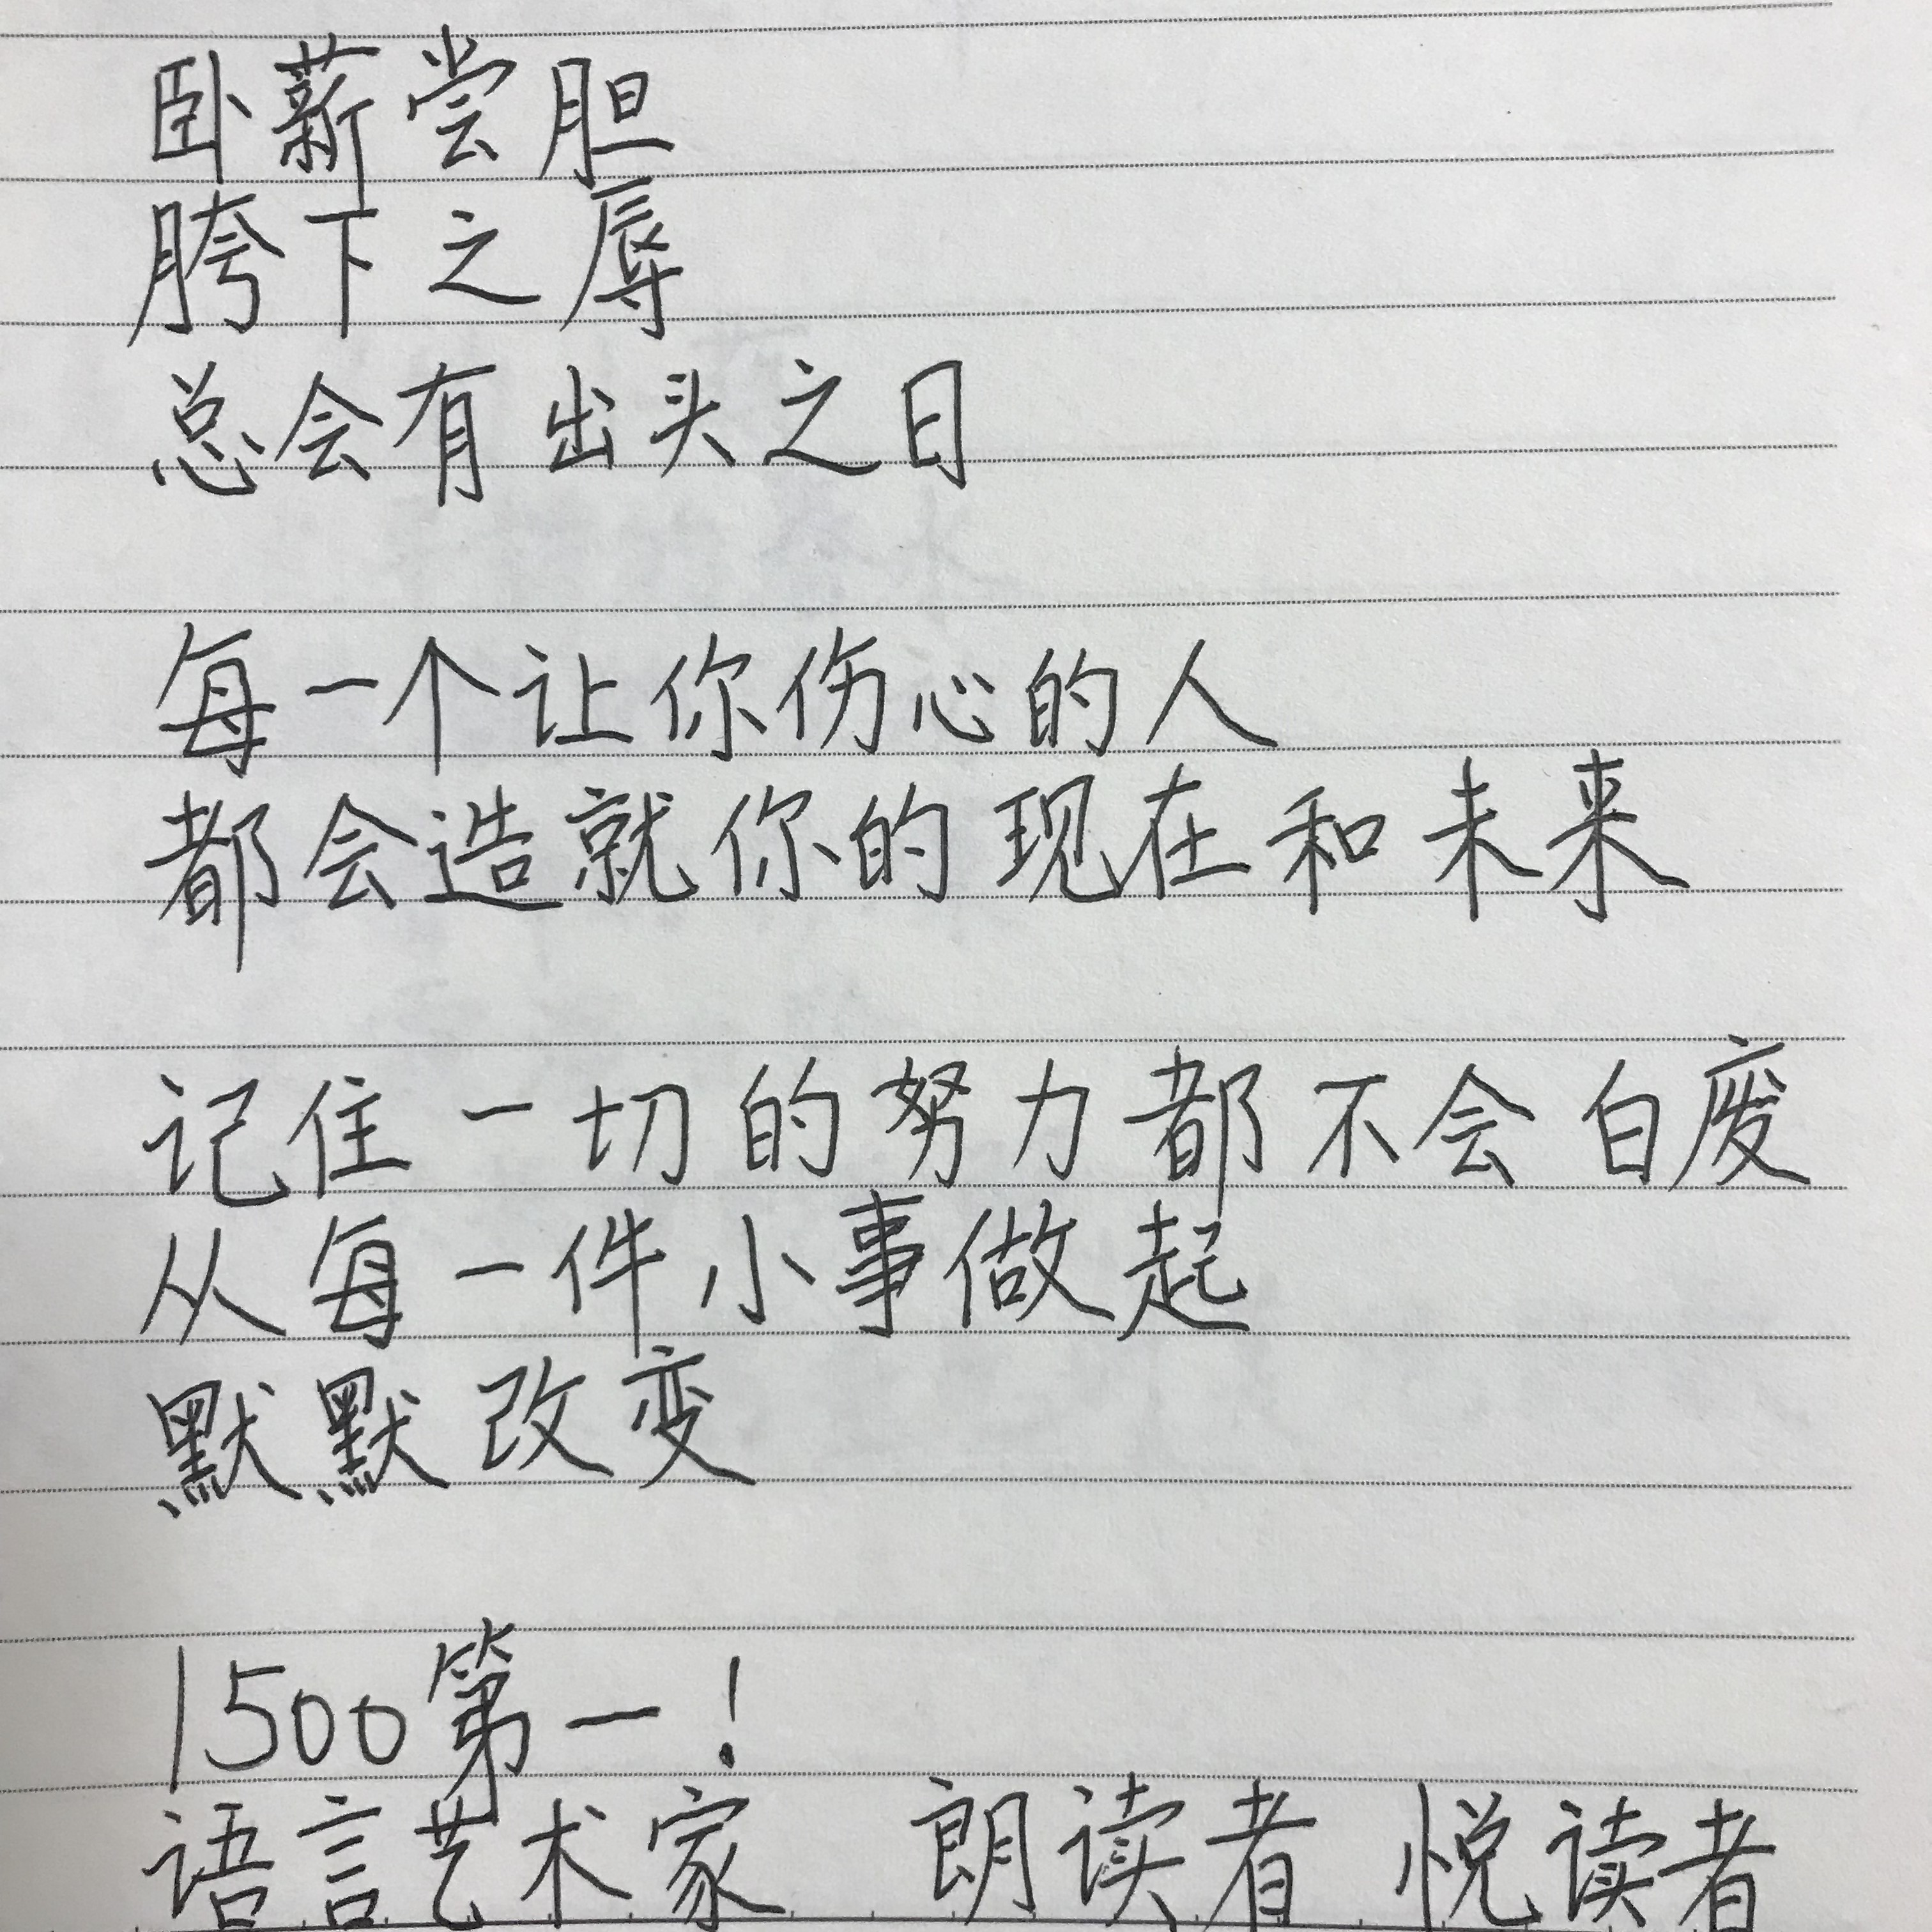 卧薪尝胆
胯下之辱
总会有出头之日
每一个让你伤心的人
都会造就你的现在和未来
记住一切的努力都不会白废
从每一件小事做起
默默改变
1500第一!
语言艺术家 朗读者 悦读者